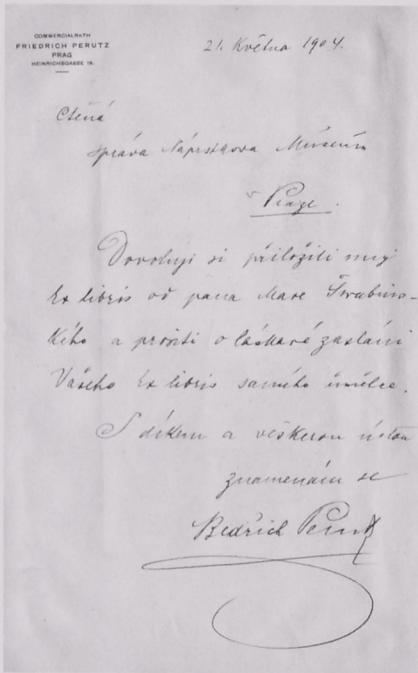 COMMERCIALRATH
FRIEDRICH PERUTZ
PRAG
HEINRICHSGASSE 19.
21. Května 1904.
Ctěná
správa Náprstkova Museum
v Praze.
Dovoluji si přiložiti můj
Ex libris od pana Maxe Švabins-
kého a prositi o laskavé zaslání
Vašeho Ex libris samého umělce.
S díkem a veškerou úctou
znamenám se
Bedřich Perutz